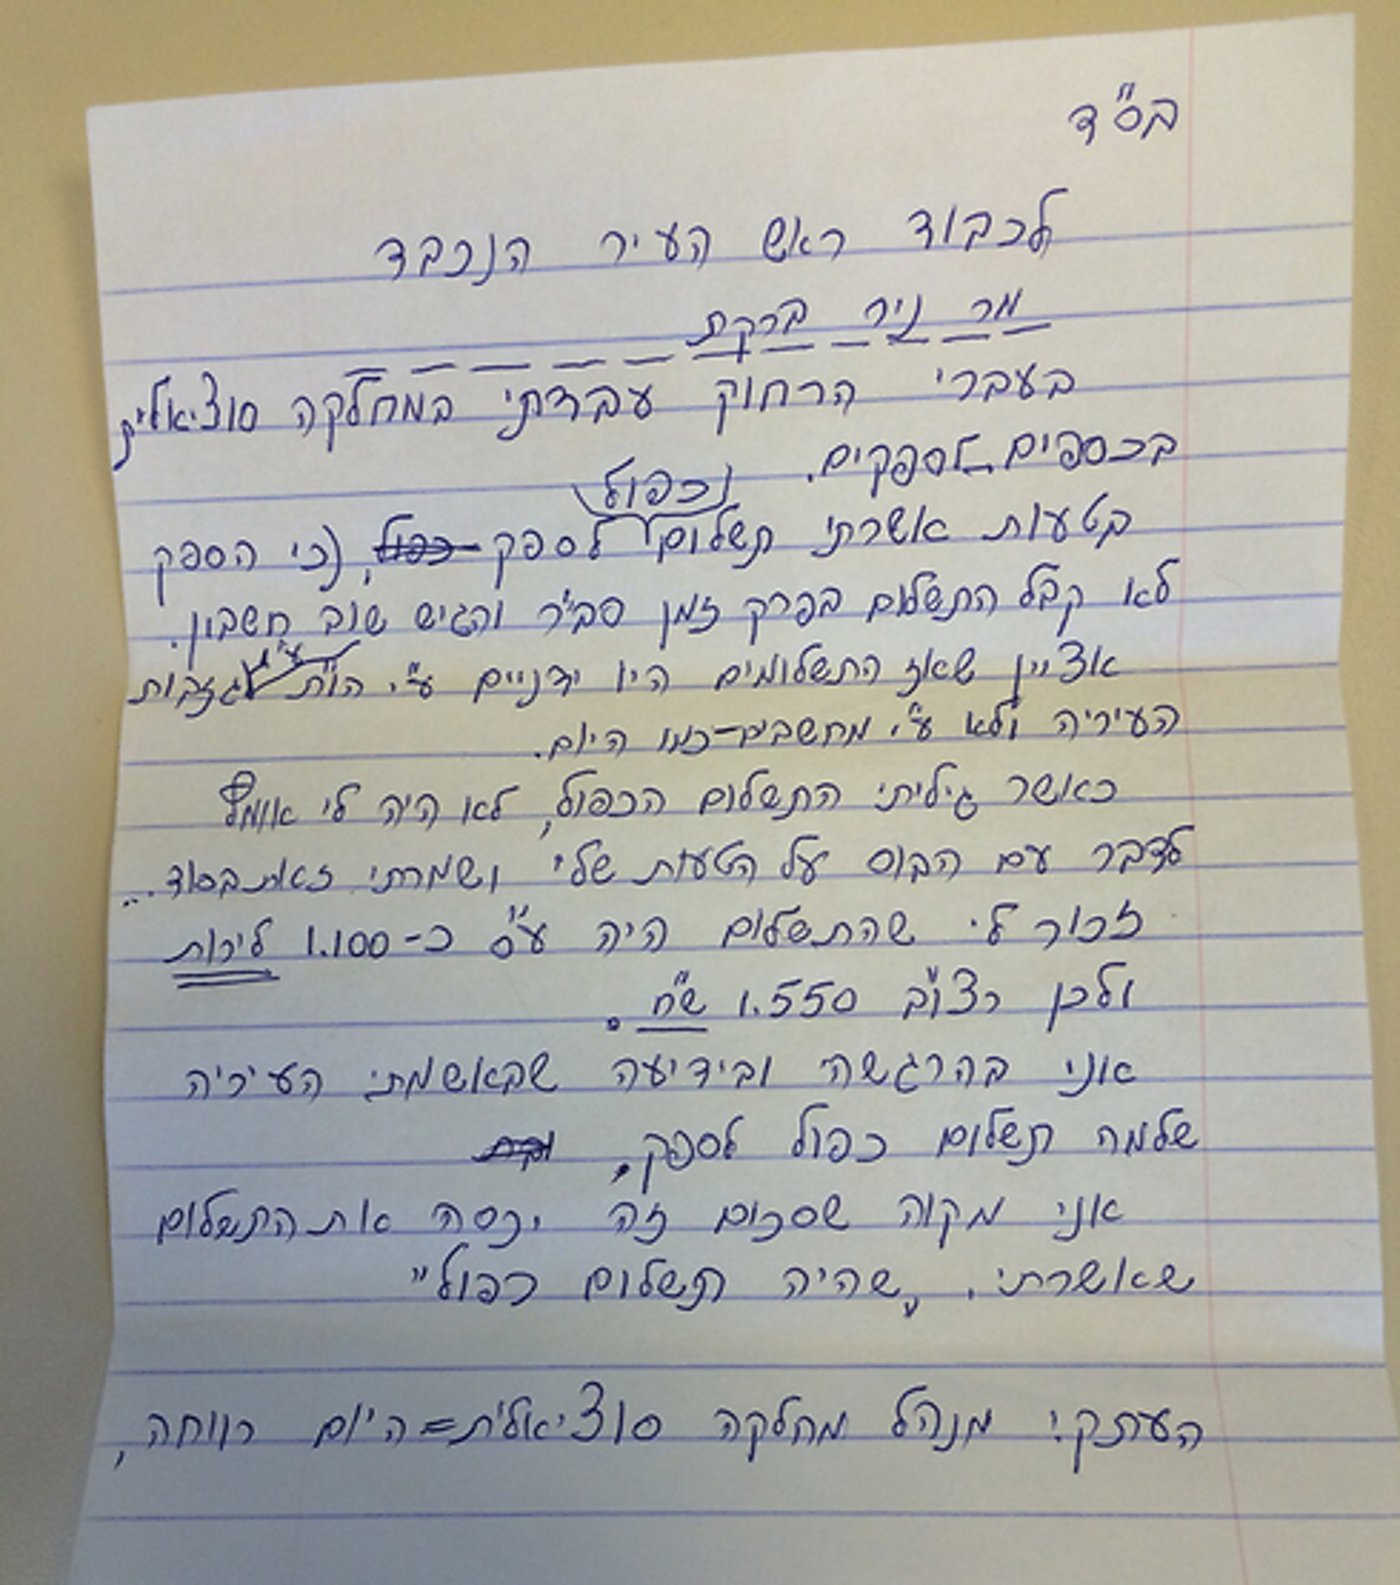 בס"ד
לכבוד ראש העיר הנכבד
מר ניר ברקת
בעברי הרחוק עבדתי במחלקה סוציאלית
בכספים לספקים.
בטעות אשרתי תשלום וכפול לספק כפול, (כי הספק
לא קבל התשלום בפרק זמן סביר והגיש שוב חשבון.
אציין שאז התשלומים היו ידניים ע"י הו"ת ע"י גזברות
העיריה ולא ע"י מחשבים-כמו היום.
כאשר גיליתי התשלום הכפול, לא היה לי אומץ
לדבר עם הבוס על הטעות שלי ושמרתי זאת בסוד...
זכור לי שהתשלום היה ע"ס כ-1.100 לירות
ולכן רצו"ב 1.550 ש"ח.
אני בהרגשה ובידיעה שבאשמתי העיריה
שלמה תשלום כפול לספק.
אני מקוה שסכום זה יכסה את התשלום
שאשרתי. שהיה תשלום כפול"
העתק: מנהל מחלקה סוציאלית=היום רווחה,